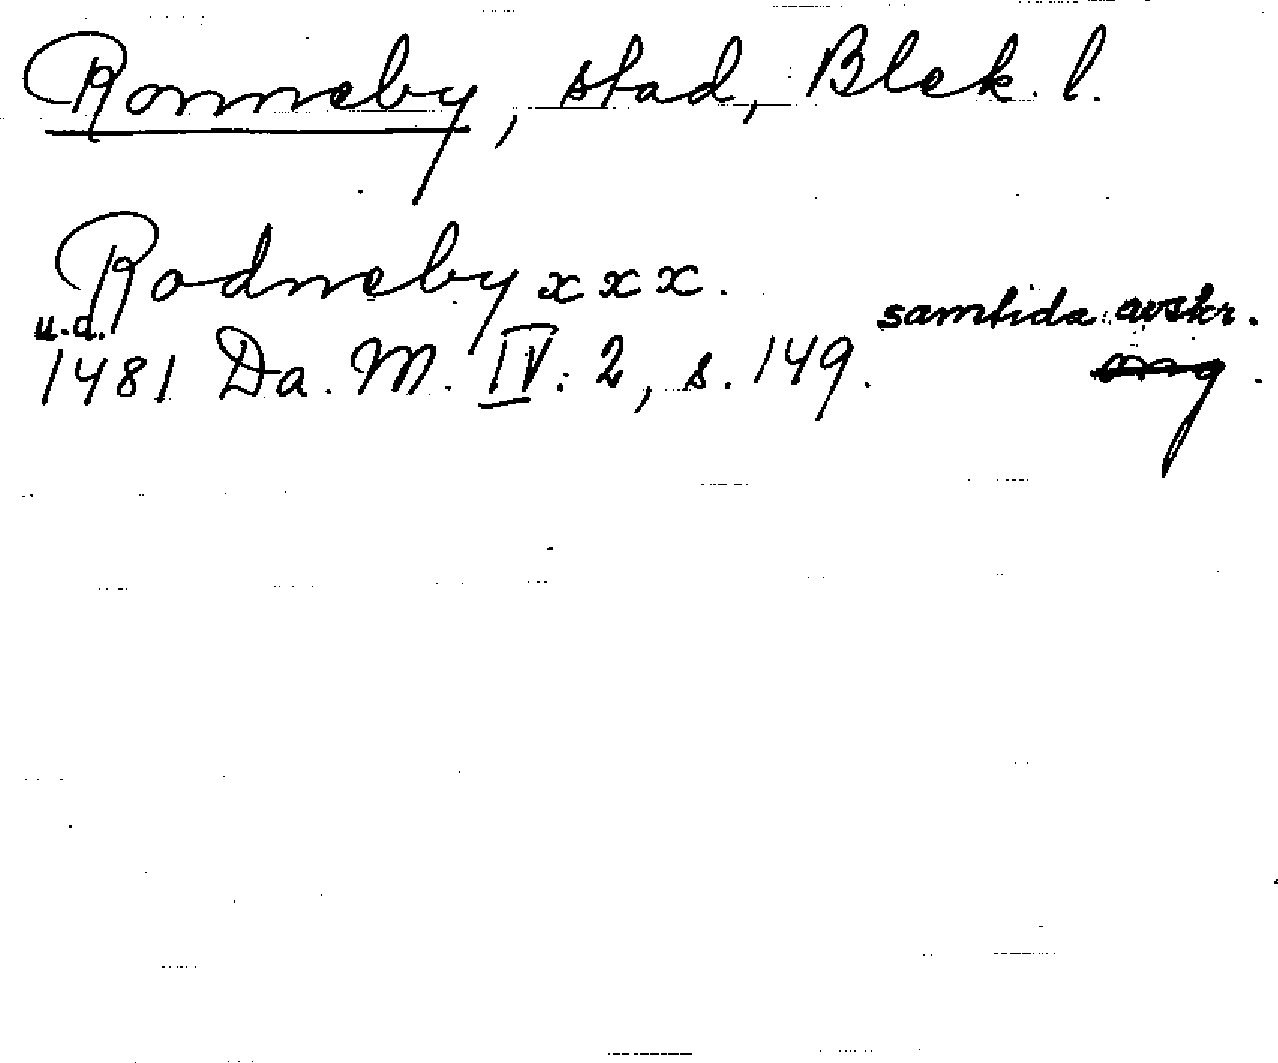 Ronneby, stad, Blek. l.
Rodneby x x x.
u.d. samtida avskr.
1481 Da. M. IV: 2, s. 149.